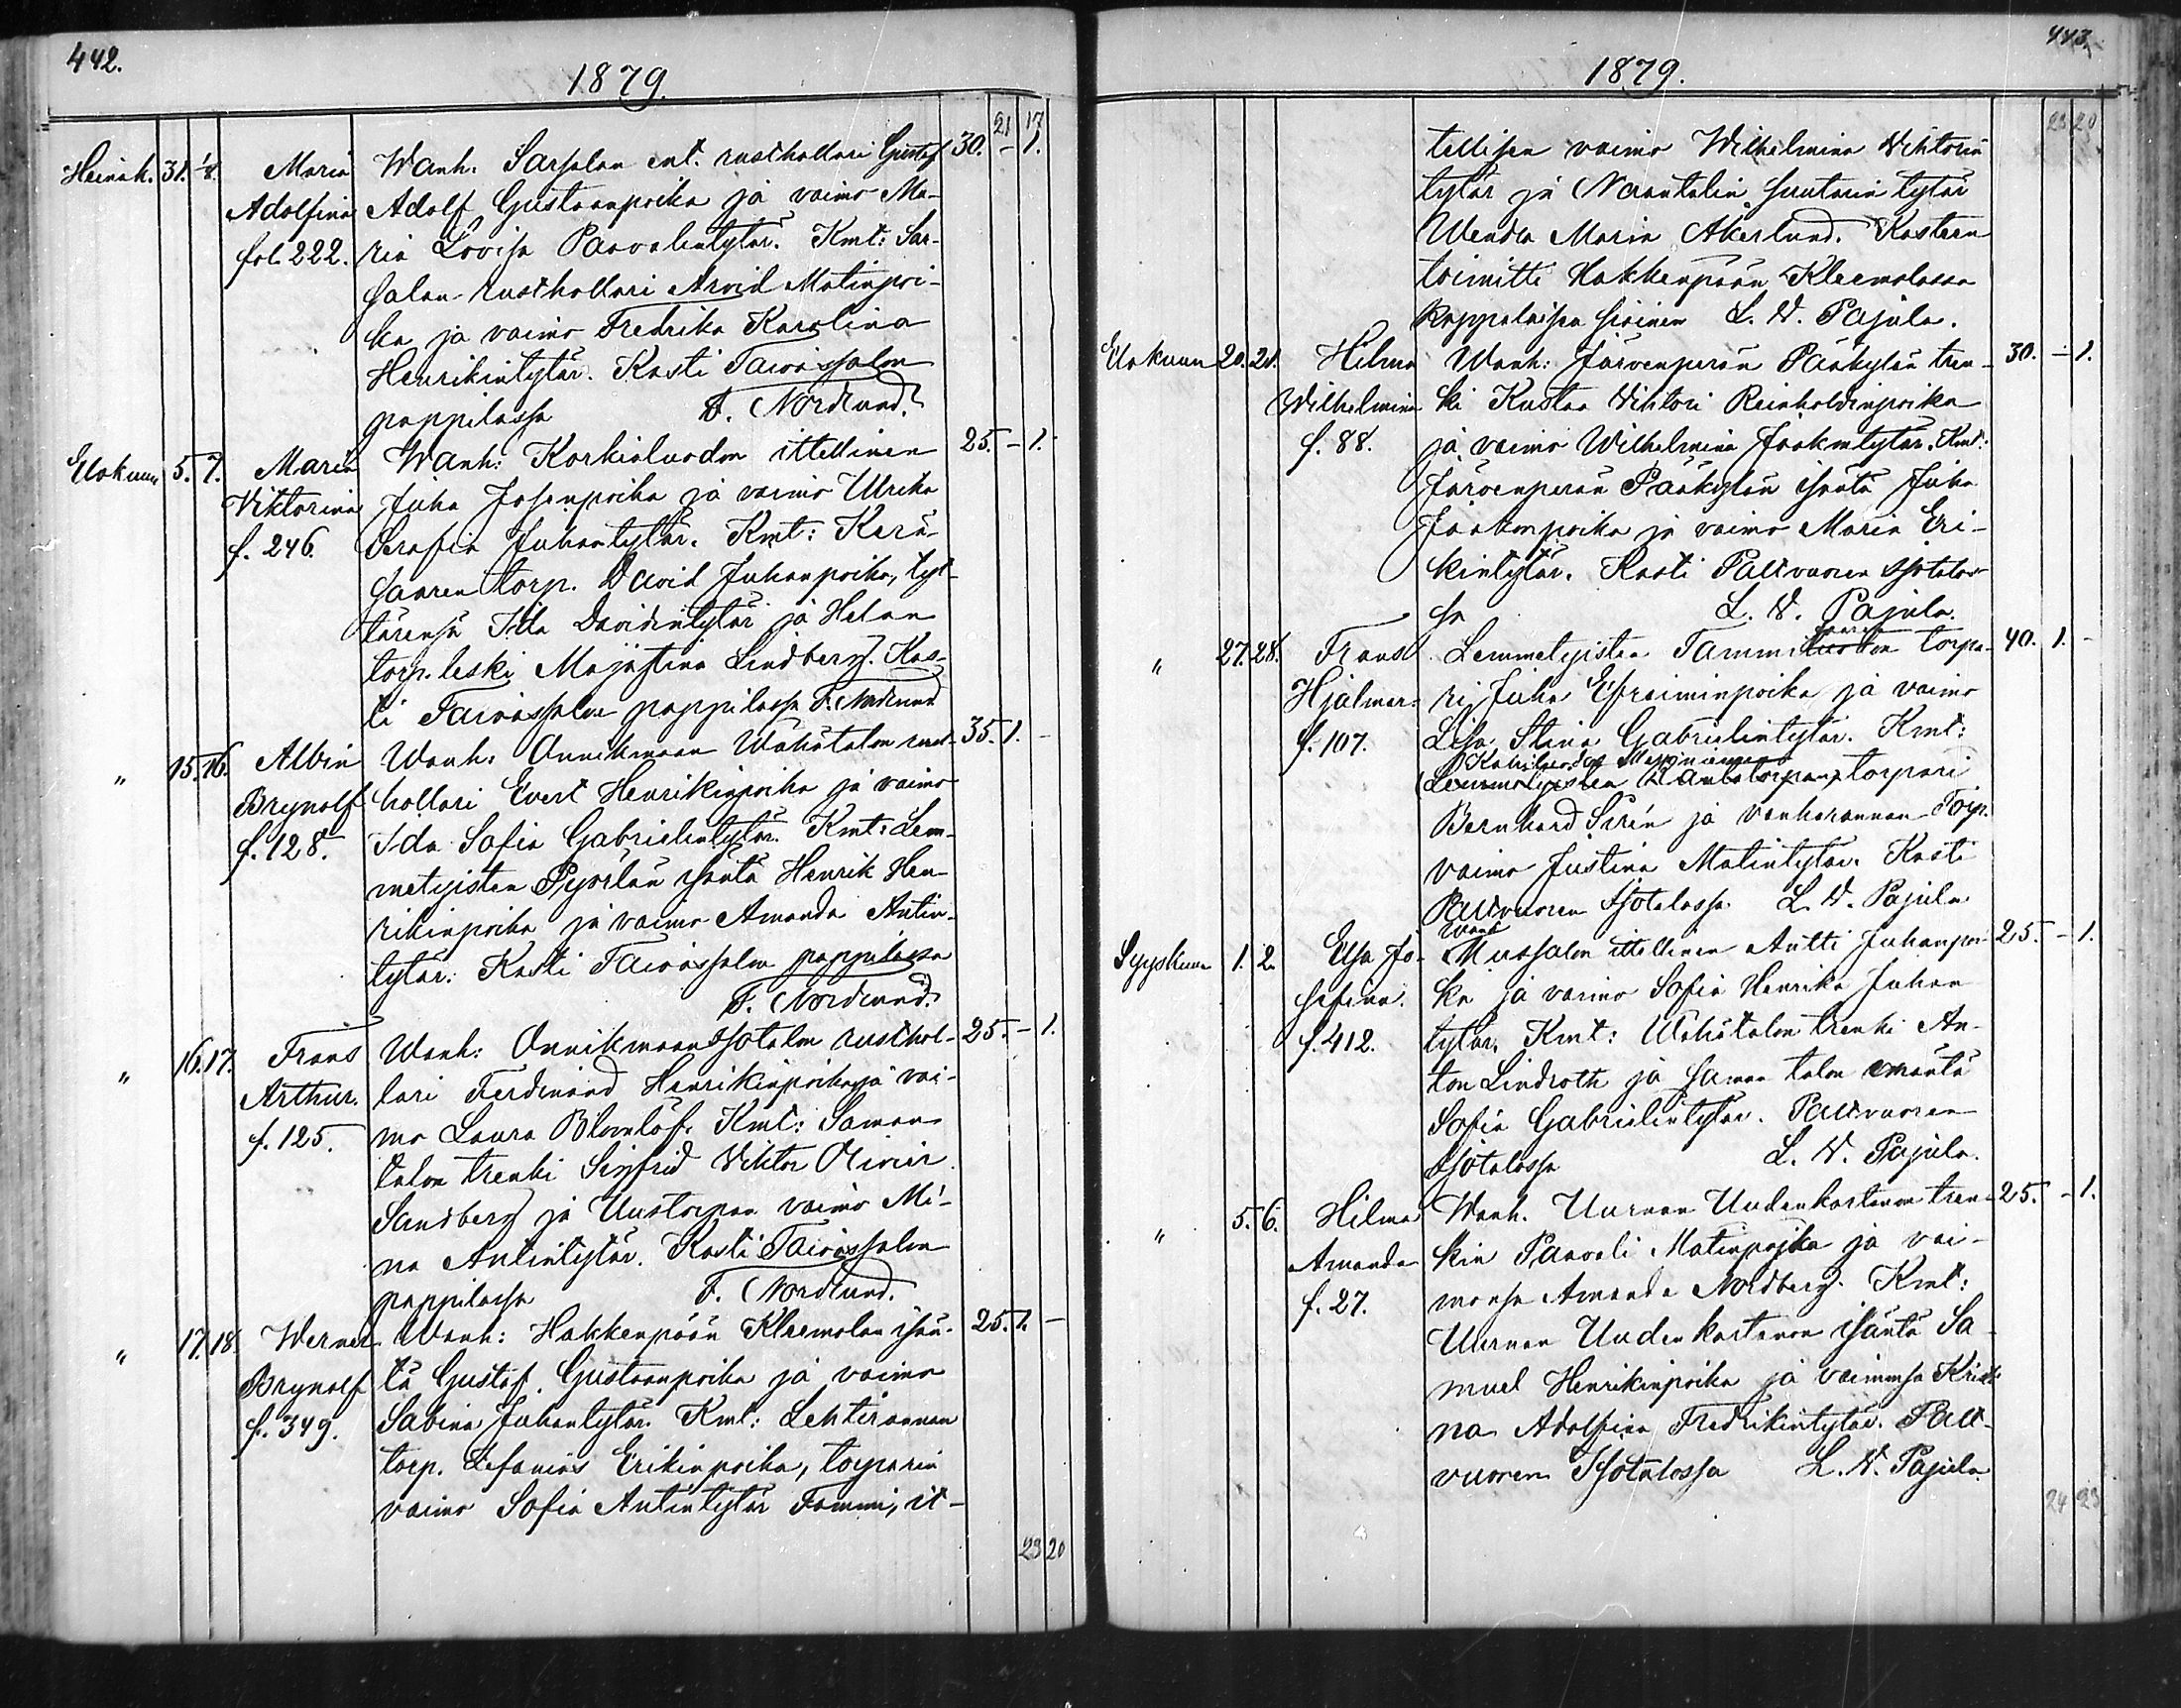 442.
1879.
21 17
Heinäk. 31. 1/8. Maria Wanh. Sarsalan ent. rusthollari Gustaf 30. - 1.
Adolfina Adolf Gustaanpoika ja vaimo Ma-
fol. 222. ria Lovisa Paavalintytär. Kmt: Sar-
salan rusthollari Arvid Matinpoi-
ka ja vaimo Fredrika Karolina
Henrikintytär. Kasti Taivassalon
pappilassa F. Nordlund.
Elokuun 5. 7. Maria Wanh: Korkialuodon ittellinen 25. - 1.
Viktorina Juha Josenpoika ja vaimo Ulrika
f. 246. Serafia Juhantytär. Kmt: Kerä-
saaren torp. David Juhanpoika, tyt-
tärensä Ida Davidintytär ja Helan
torp. leski Majastina Lindberg. Kas-
ti Taivassalon pappilassa F. Nordlund
" 15. 16. Albin Wanh: Onnikmaan Wähätalon rust- 35. 1. -
Brynolf hollari Evert Henrikinpoika ja vaimo
f. 128. Ida Sofia Gabrielintytär. Kmt: Lem-
metyisten Pyörlän isäntä Henrik Hen-
rikinpoika ja vaimo Amanda Antin-
tytär. Kasti Taivassalon pappilassa
F. Nordlund.
" 16. 17. Frans Wanh: Onnikmaan Isotalon rusthol- 25. - 1.
Arthur. lari Ferdinand Henrikinpoika ja vai-
f. 125. mo Laura Blomlöf. Kmt: Saman
talon trenki Sigfrid Viktor Olivier
Sandberg ja Uustorpan vaimo Mi-
na Antintytär. Kasti Taivassalon
pappilassa F. Nordlund.
" 17. 18. Werner Wanh: Hakkenpään Kleemolan isän- 25. 1. -
Brynolf tä Gustaf Gustaanpoika ja vaimo
f. 349. Sabina Juhantytär. Kmt: Lehtirannan
torp. Sefanias Erikinpoika, torparin
vaimo Sofia Antintytär Tommi, it-
23 20
443.
1879.
23 20
tellisen vaimo Wilhelmina Wihtorin
tytär ja Naantalin suutarin tytär
Wendla Maria Åkerlund. Kasteen
toimitti Hakkenpään Kleemolassa
kappalaisen sijainen L. W. Pajula.
Elokuun 20. 21. Hilma Wanh: Järvenperän Pääkylän tren- 30. - 1.
Wilhelmina ki Kustaa Wihtori Reinholdinpoika
f. 88. ja vaimo Wilhelmina Jaakontytär. Kmt:
Järvenperän Pääkylän isäntä Juha
Jaakonpoika ja vaimo Maria Eri-
kintytär. Kasti Paltvuoren Isotalos-
sa L. W. Pajula.
" 27. 28. Frans Lemmetyisten Tammi saaren torpa- 40. 1. -
Hjalmar ri Juha Efraiminpoika ja vaimo
f. 107. Lisa Stina Gabrielintytär. Kmt:
Lemmetyisten torpari
Bernhard Sirén ja Vanharannan Torp.
vaimo Justina Matintytär. Kasti
Paltvuoren Isotalossa L. W. Pajula
Wanh
Syyskuun 1. 2. Elsa Jo- Mussalon ittellinen Antti Juhanpoi- 25. - 1.
sefina. ka ja vaimo Sofia Henrika Juhan
f. 412. tytär. Kmt: Wähätalon trenki An-
ton Lindroth ja saman talon emäntä
Sofia Gabrielintytär. Paltvuoren
Isotalossa L. W. Pajula.
" 5. 6. Hilma Wanh. Uurnan Uudenkartanon tren- 25. - 1.
Amanda kin Paavali Matinpojka ja vai-
f. 27. monsa Amanda Nordberg. Kmt:
Uurnan Uudenkartanon isäntä Sa-
muel Henrikinpoika ja vaimonsa Kristi
na Adolfina Fredrikintytär. Palt-
vuoren Isotalossa L. W. Pajula
24 23